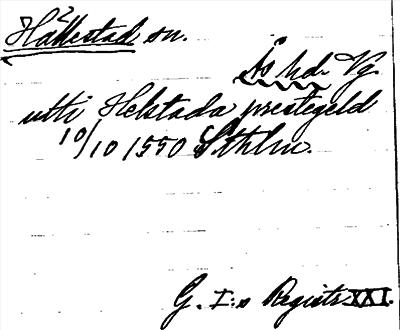 Hällestad sn.
2
Ås hd. Vg.
utti Helstada prestegeld
10/10 1550 Sthlm.
G. I:s Registr. XXI.